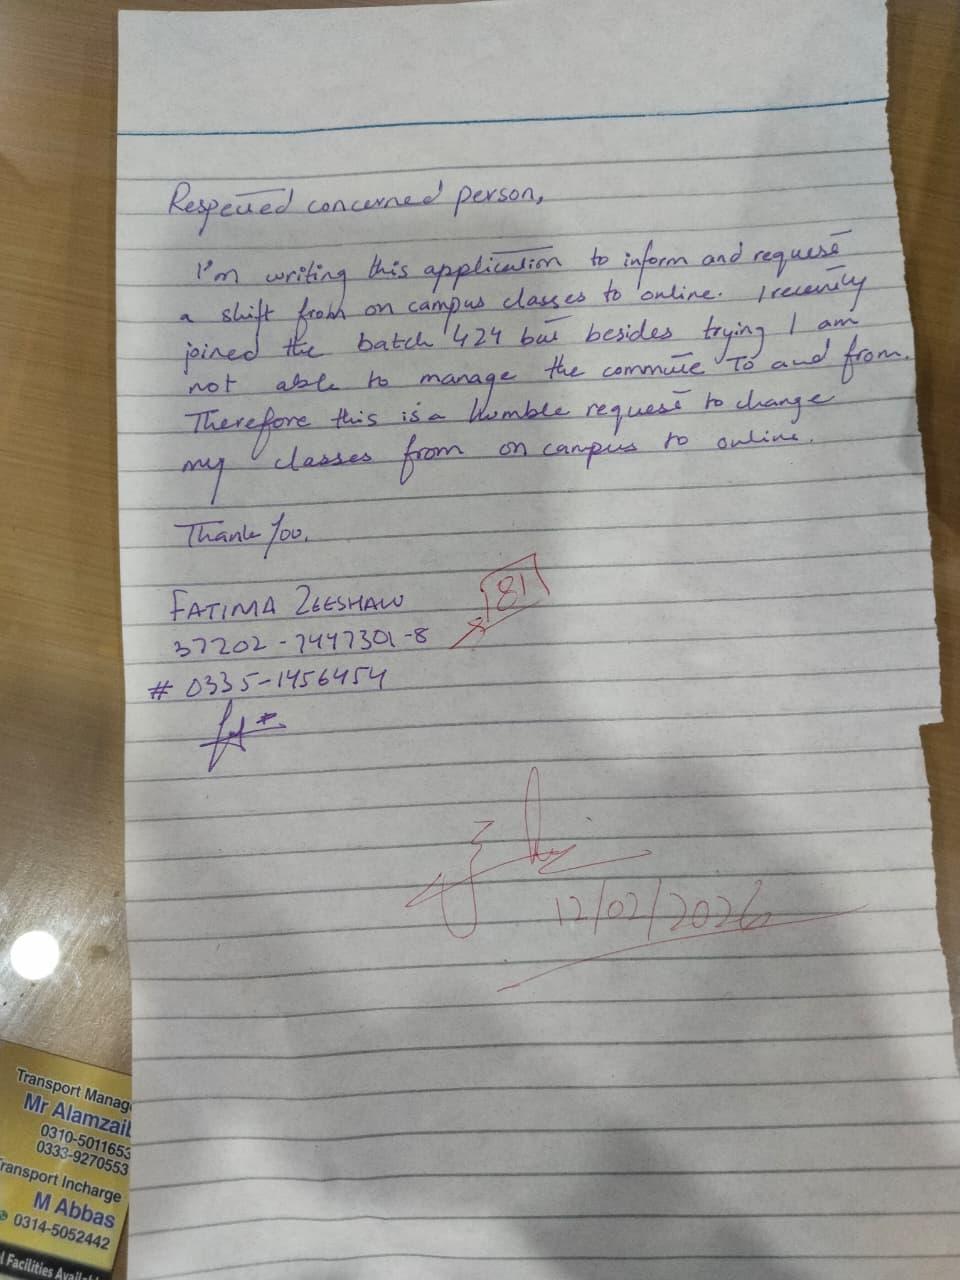 Respected concerned person,
I'm writing this application to inform and request
a shift from on campus classes to online. I recently
joined the batch 424 but besides trying I am
not able to manage the commute to and from.
Therefore this is a humble request to change
my classes from on campus to online.
Thank You.
FATIMA ZEESHAN
81
37202-7447301-8
# 0335-1456454
12/02/2026
Transport Manag
Mr Alamzaib
0310-5011653
0333-9270553
Transport Incharge
M Abbas
0314-5052442
l Facilities Availabl